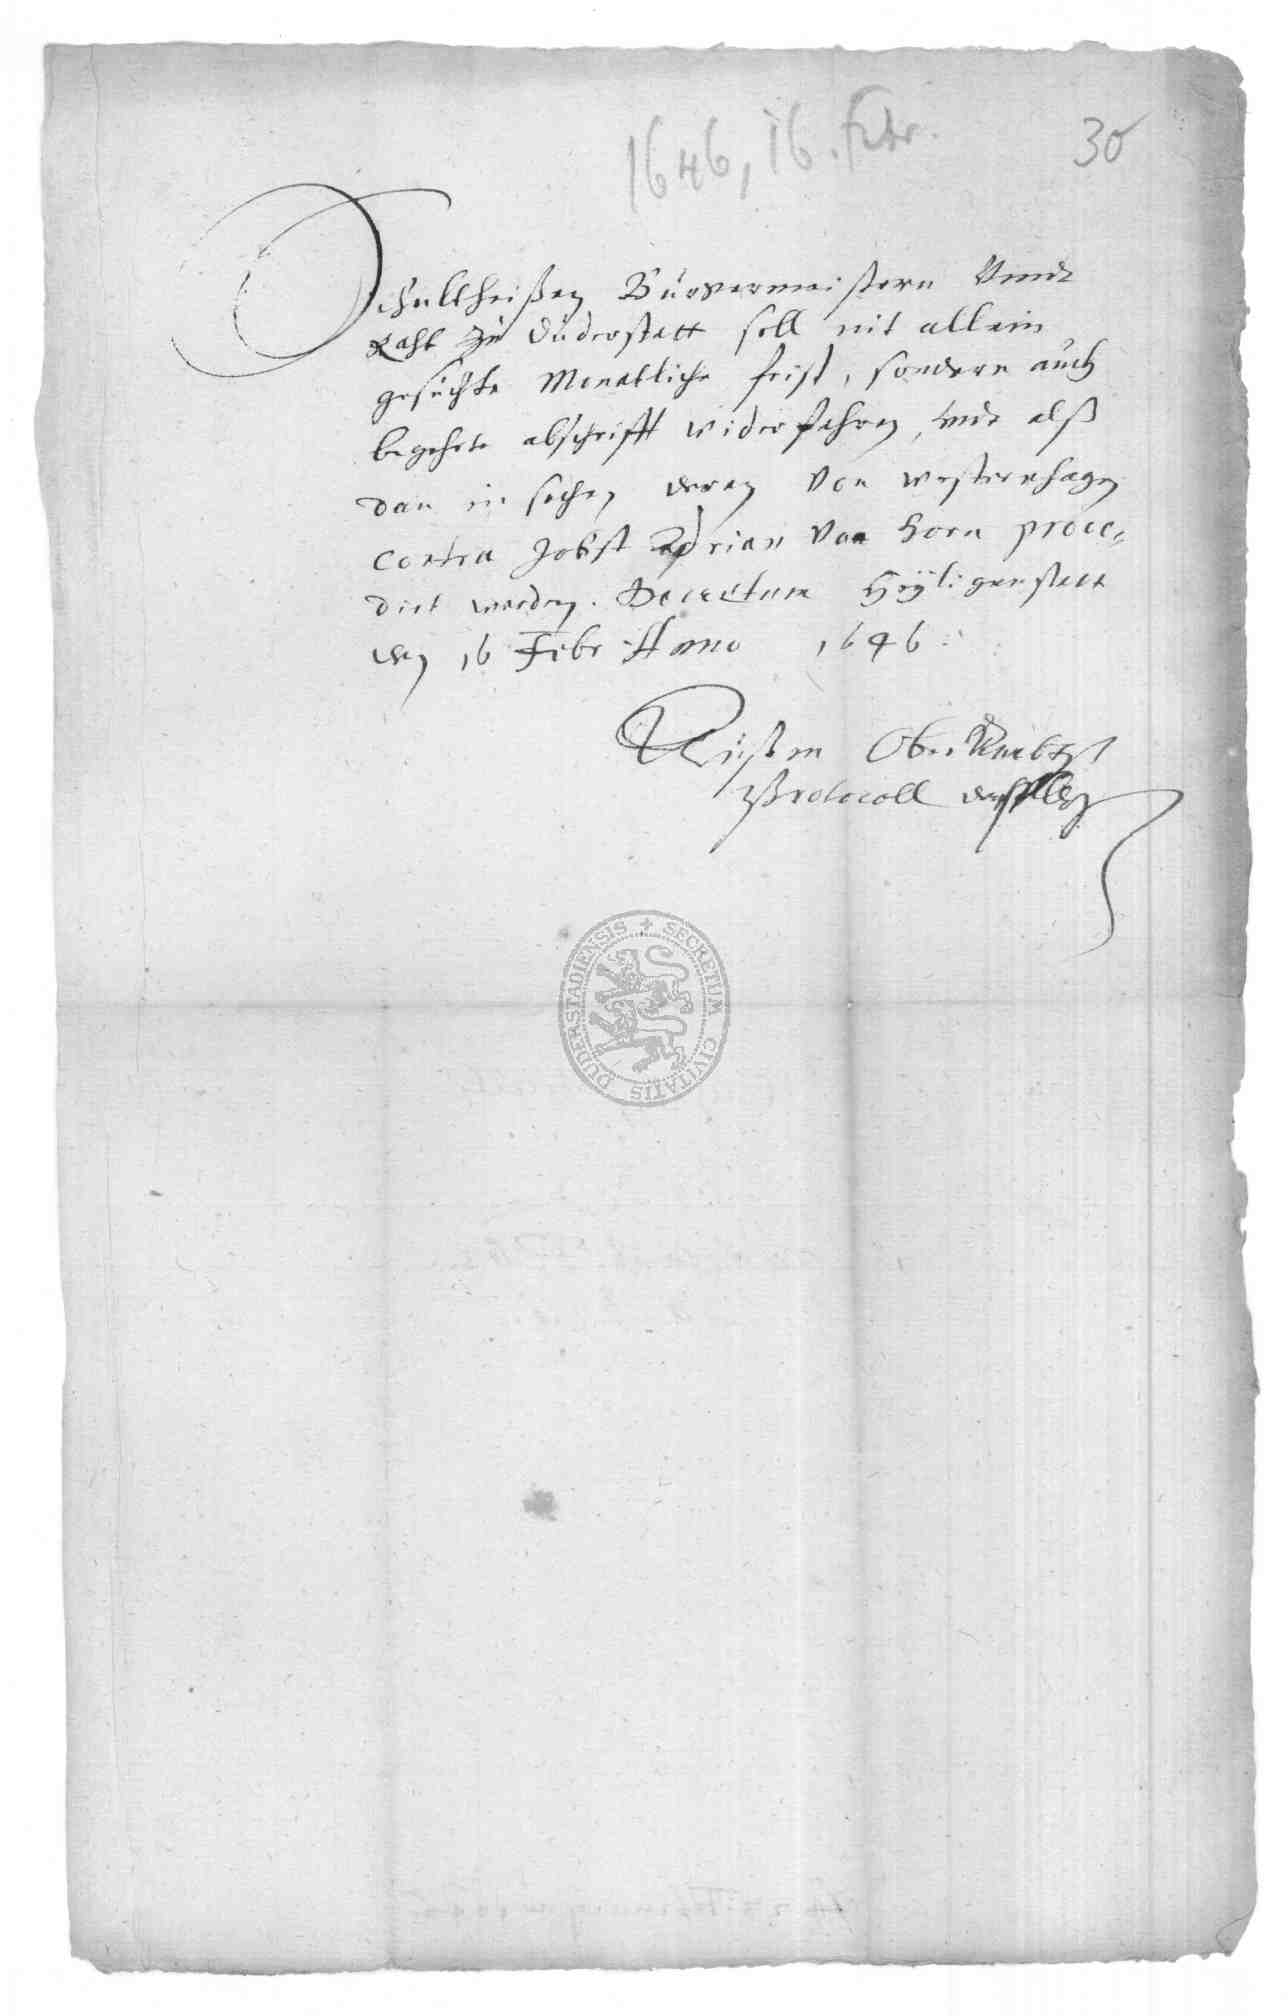 1646, 16. Febr.
30
Schultheißen Bürgermeistern Vnndt
Raht Zu Duderstatt soll nit allein
gesuchte Monatliche frist, sondern auch
begehrte abschrifft widerfahren, vndt alß
dan in sachen deren Von westernhagen
contra Jobst Adrian Von Horn proce-
dirt werden. Decretum Heyligenstatt
den 16 Febr Anno 1646.
Ober
Protocoll daselbst
SECRETUM CIVITATIS DUDERSTADIENSIS